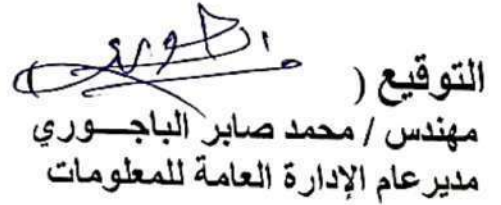 التوقيع (
مهندس / محمد صابر الباجـــوري
مدير عام الإدارة العامة للمعلومات